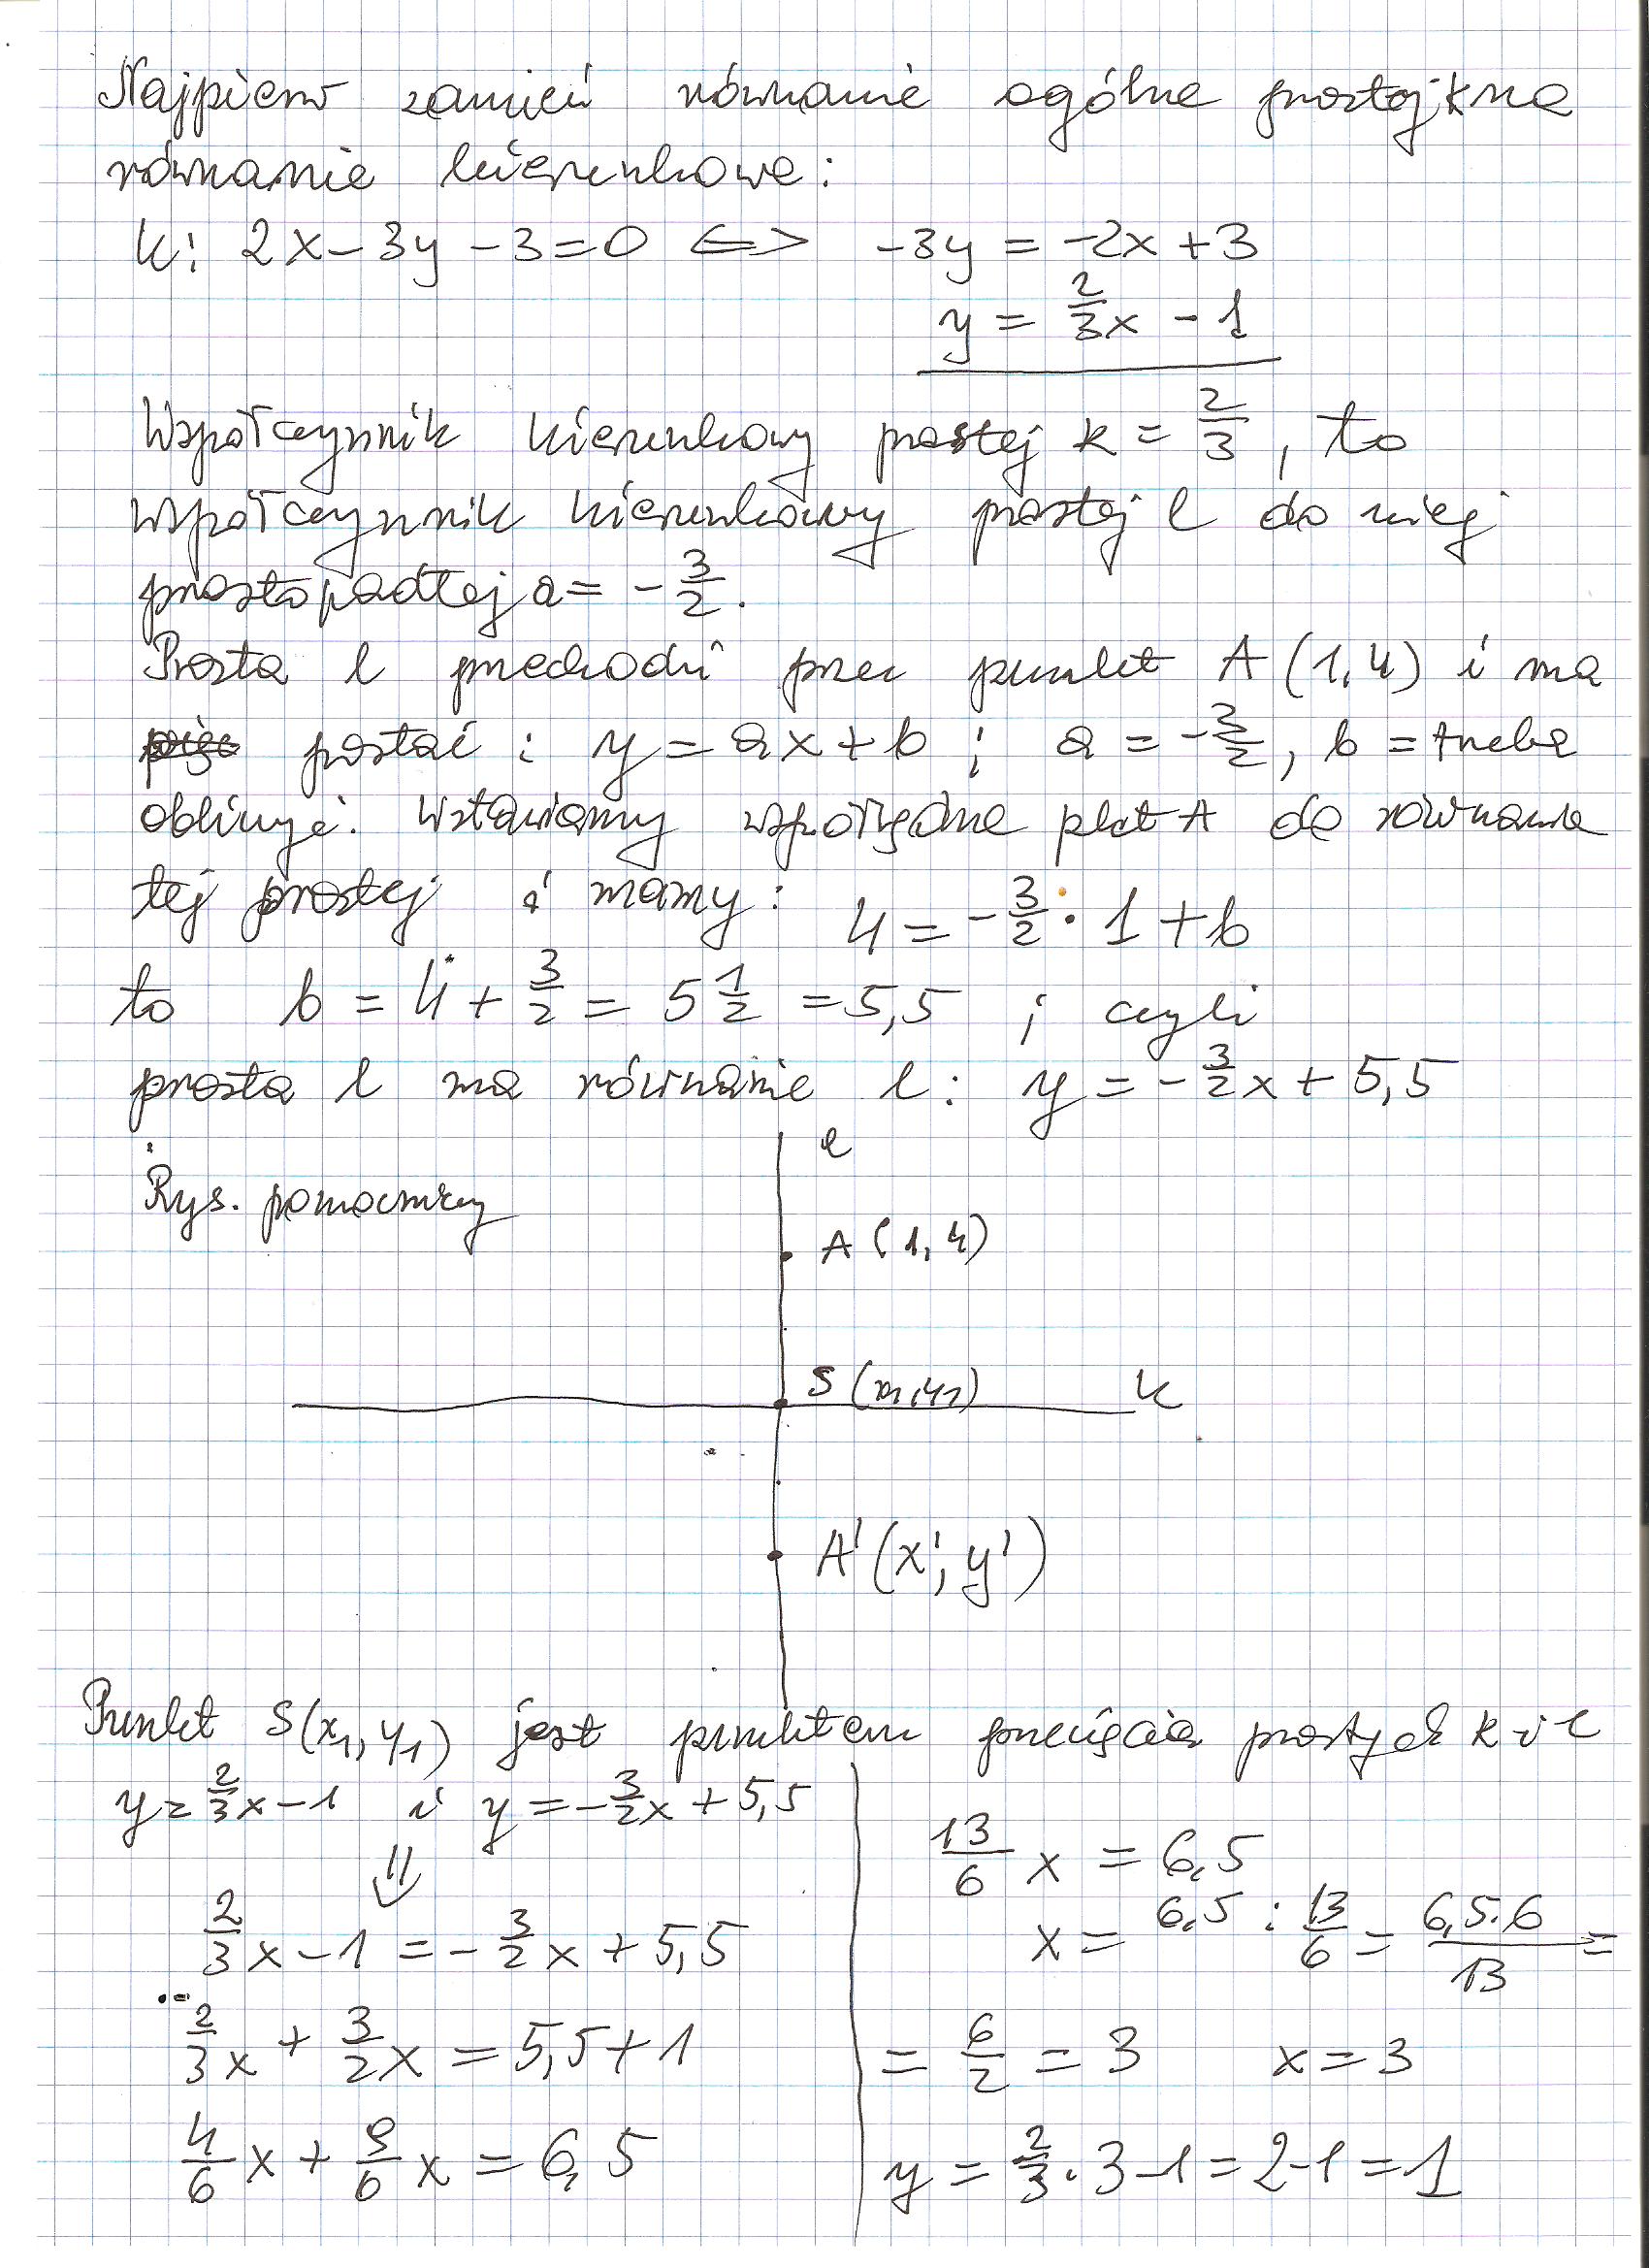 Najpierw zamień równanie ogólne prostej k na
równanie kierunkowe:
k: 2x - 3y - 3 = 0 <=> -3y = -2x + 3
y = 2/3 x - 1
Współczynnik kierunkowy prostej k = 2/3, to
współczynnik kierunkowy prostej l do niej
prostopadłej a = - 3/2.
Prosta l przechodzi przez punkt A (1, 4) i ma
postać : y = ax + b ; a = - 3/2, b = trzeba
obliczyć. Wstawiamy współrzędne pkt A do równania
tej prostej i mamy: 4 = - 3/2 · 1 + b
to b = 4 + 3/2 = 5 1/2 = 5,5 ; czyli
prosta l ma równanie l: y = - 3/2 x + 5,5
l
Rys. pomocniczy
A (1, 4)
S (x₁, y₁) k
A' (x'; y')
Punkt S(x₁, y₁) jest punktem przecięcia prostych k i l
y = 2/3 x - 1 i y = - 3/2 x + 5,5
⇓
2/3 x - 1 = - 3/2 x + 5,5
2/3 x + 3/2 x = 5,5 + 1
4/6 x + 9/6 x = 6,5
13/6 x = 6,5
x = 6,5 : 13/6 = 6,5·6/13 =
= 6/2 = 3 x = 3
y = 2/3 · 3 - 1 = 2 - 1 = 1